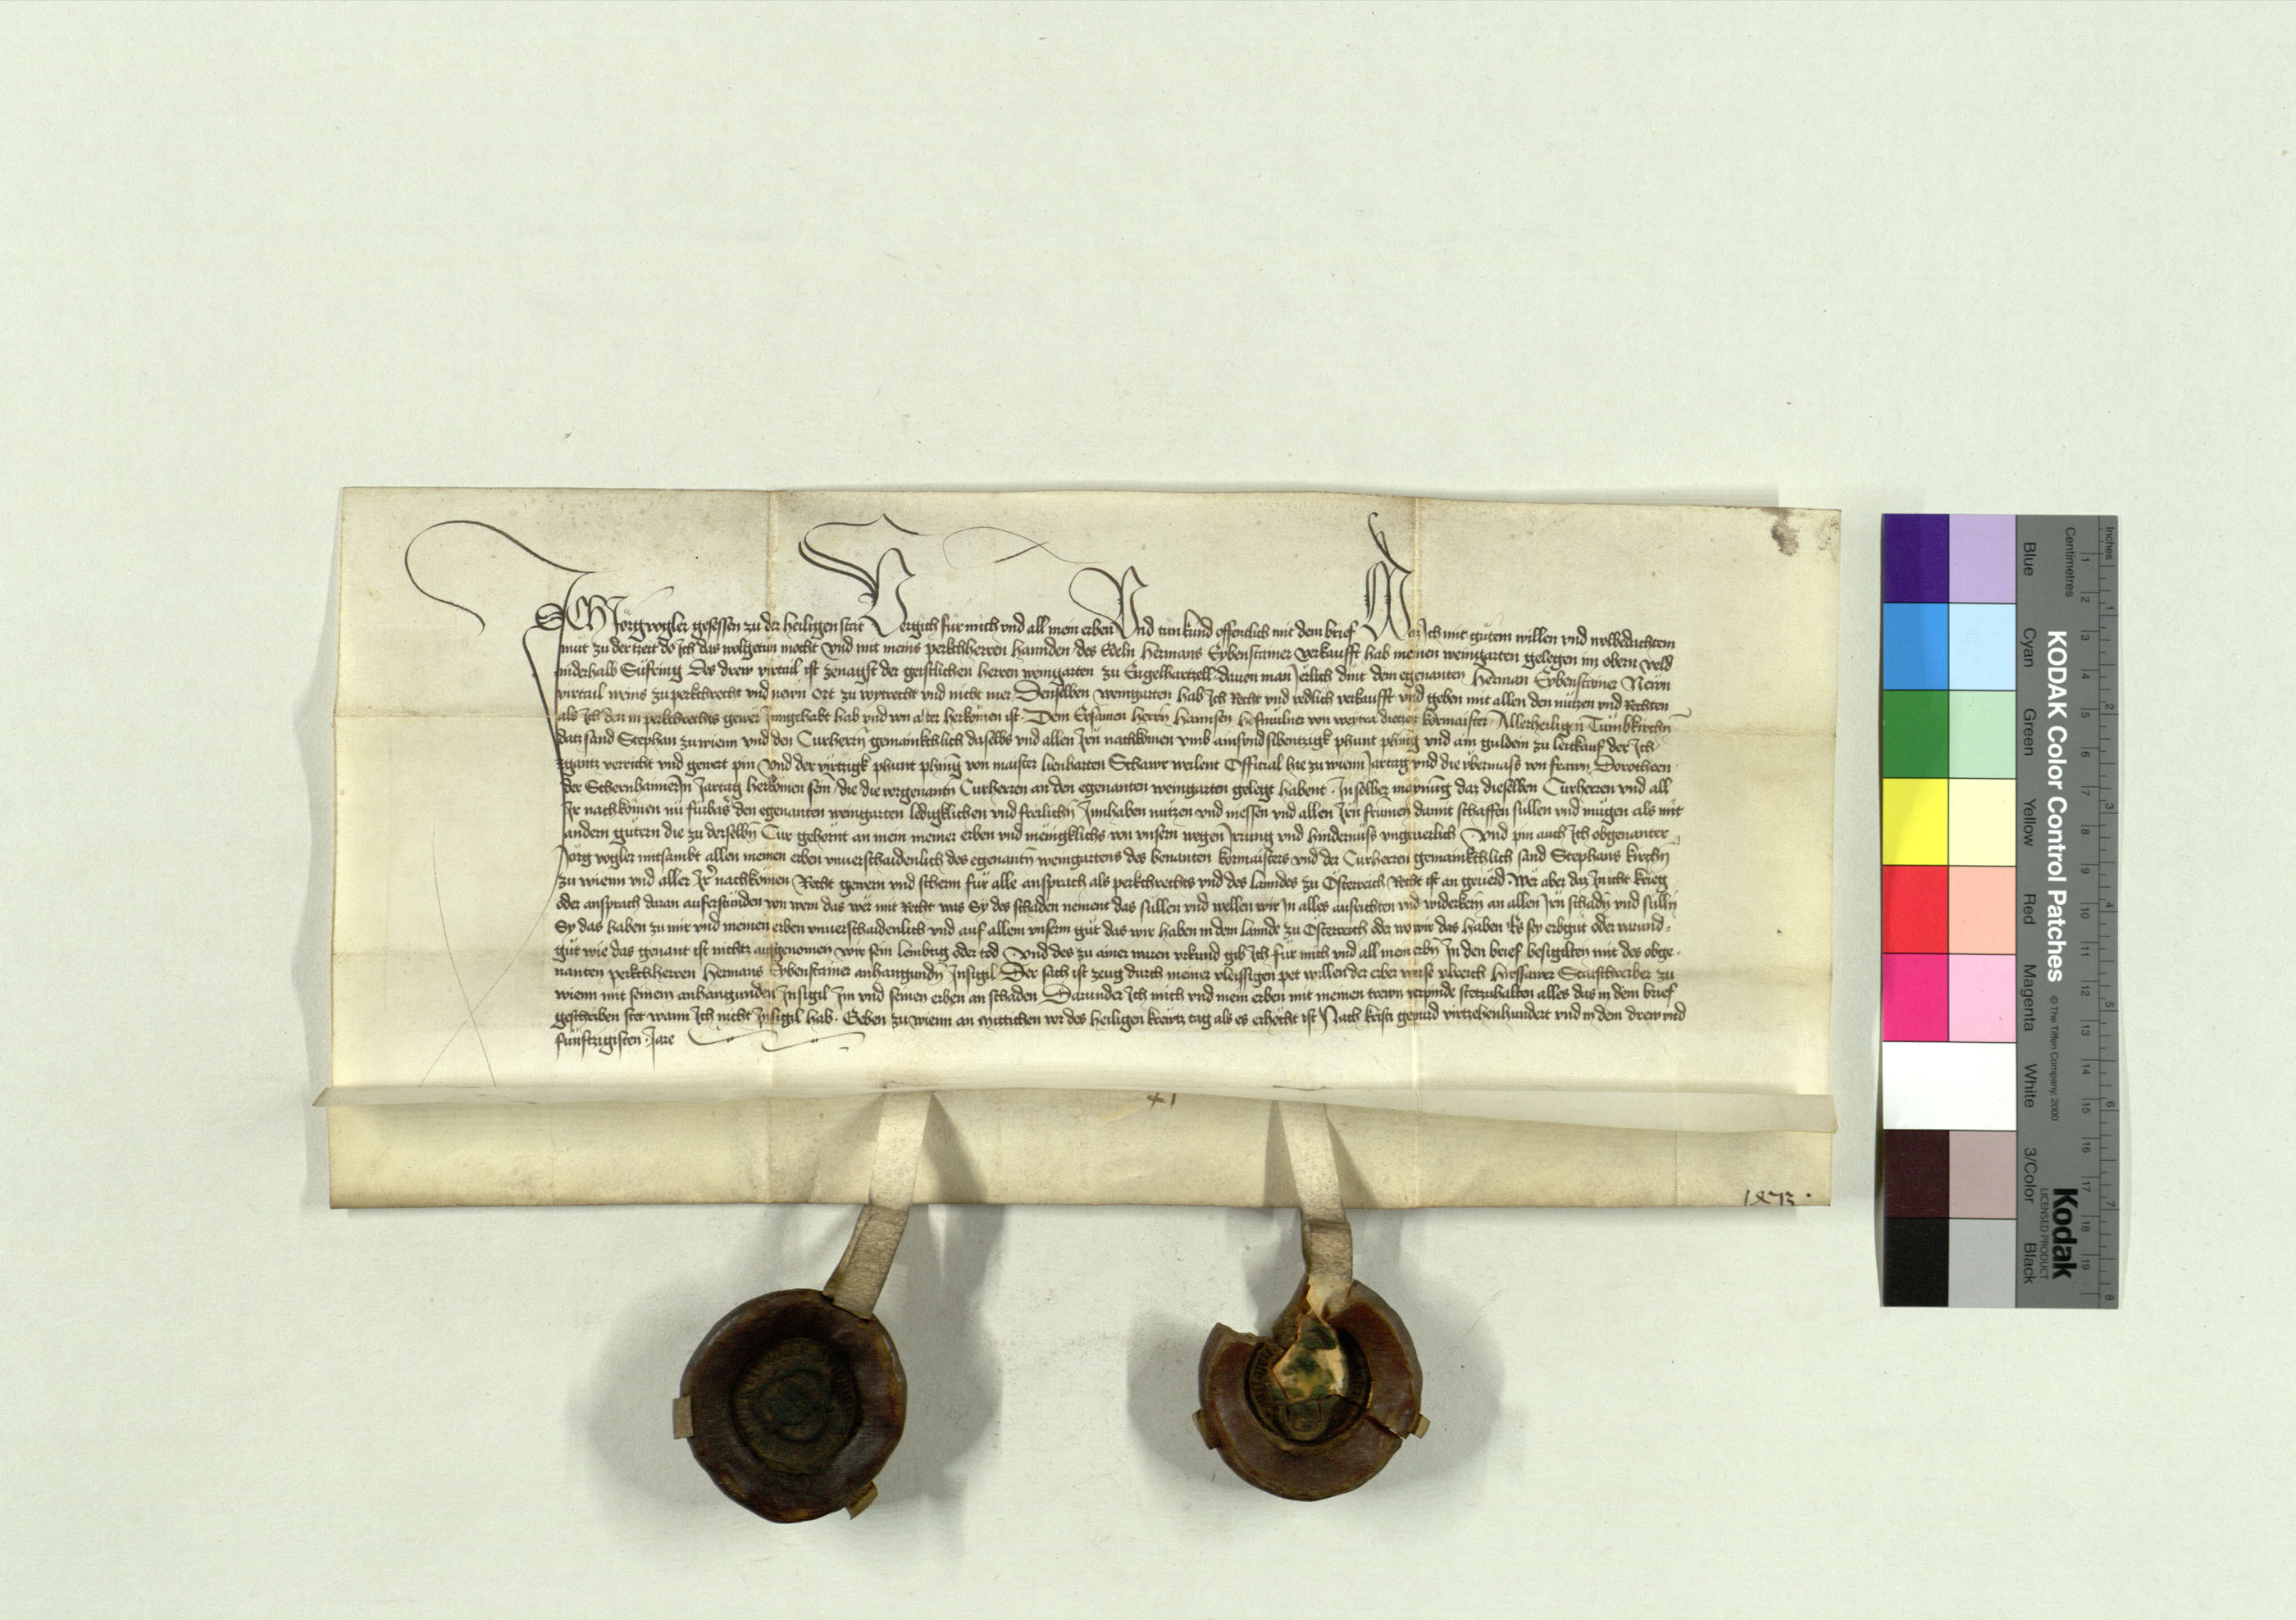 ICH Jorg vogler gesessen zu der heiligen stat Vergich für mich vnd all mein erben Vnd tün kund offenlich mit dem brief Das Ich mit gütem willen vnd wolbedachtem
müt zu der tzeit do Ich das wolgetün mocht Vnd mit meins perkchherren hannden des Edeln Hermans Eybenstainer verkaufft hab meinen weingarten gelegen im obern veld
niderhalb Süfring des drew virtail ist zenagst der geistlichen herren weingarten zu Engelhartzell dauon man Jerlich dint dem egenanten Herman Eybenstainer Newn
virtail weins zu perkchrecht vnd newn ort zu voytrecht vnd nicht mer Denselben weingarten hab Ich Recht vnd redlich verkaufft vnd geben mit allen den nützen vnd Rechten
als Ich den in perkchrechts gewer Inngehabt hab vnd von alter herkömen ist Dem Ersamen herrn Hannsen Hofmulner von weytra dietzeit kormaister Allerheiligen Tumbkirchn
datz sand Stephan zu wienn vnd den Curherrn gemainkchlich daselbs vnd allen Irn nachkömen vmb ainsvndsibentzigk phunt phenig vnd ain guldein zu leitkauf der Ich
gantz verricht vnd gewert pin Vnd der virtzigk phunt phenig von maister lienharten Schawr weilent Official hie zu wienn Jartag vnd die vbermass von frawn Dorotheen
der Schernhaimerin Jartag herkömen sein die die vorgenantn Curherren an den egenanten weingarten gelegt habent In solher maynüng daz dieselben Curherren vnd all
Ir nachkömen nü fürbas den egenanten weingarten ledigklichen vnd freilichn Innhaben nützen vnd niessen vnd allen Irn frumen damit schaffen süllen vnd mügen als mit
andern gütern die zu derselbn Cur gehörnt an mein meiner erben vnd menigklichs von vnsern wegen Irrung vnd hindernüss vngeuerlich Vnd pin auch Ich obgenanter
Jorg vogler mitsambt allen meinen erben vnuerschaidenlich des egenantn weingartens des benanten kormaisters vnd der Curherren gemainkchlich sand Stephans kirchn
zu wienn vnd aller Ir nachkömen Recht gewern vnd scherm für alle ansprach als perkchrechts vnd des lanndes zu Österreich Recht ist an geuerd Wer aber daz In icht krieg
oder ansprach daran auferstünden von wem das wer mit Recht was Sy des schaden nement das süllen vnd wellen wir In alles ausrichten vnd widerkern an allen Irn schadn vnd sülln
Sy das haben zu mir vnd meinen erben vnuerschaidenlich vnd auf allem vnserm güt das wir haben in dem lannde zu Österreich oder wo wir das haben Es sey erbgüt oder varund
güt wie das genant ist nichtz ausgenomen wir sein lembtig oder tod Vnd des zu ainer waren vrkund gib Ich für mich vnd all mein erbn In den brief besigilten mit des obge
nanten perkchherren Hermans Eybenstainer anhangundn Insigil Der sach ist zeug durch meiner vleissigen pet willen der erber weise vlreich Hirssawer Statschreiber zu
wienn mit seinem anhangunden Insigil Im vnd seinen erben an schaden Darunder Ich mich vnd mein erben mit meinen trewn verpinde stetzuhalten alles das in dem brief
geschriben stet wann Ich nicht Insigil hab Geben zu wienn an Mittichen vor des heiligen krewtz tag als es erhöcht ist Nach kristi gepurd virtzehenhundert vnd in dem drew vnd
fünftzigisten Jare
KODAK Color Control Patches © The Tiffen Company, 2000
Kodak
LICENSED PRODUCT
Blue Cyan Green Yellow Red Magenta White 3/Color Black
Centimetres 1 2 3 4 5 6 7 8 9 10 11 12 13 14 15 16 17 18 19
Inches 1 2 3 4 5 6 7 8